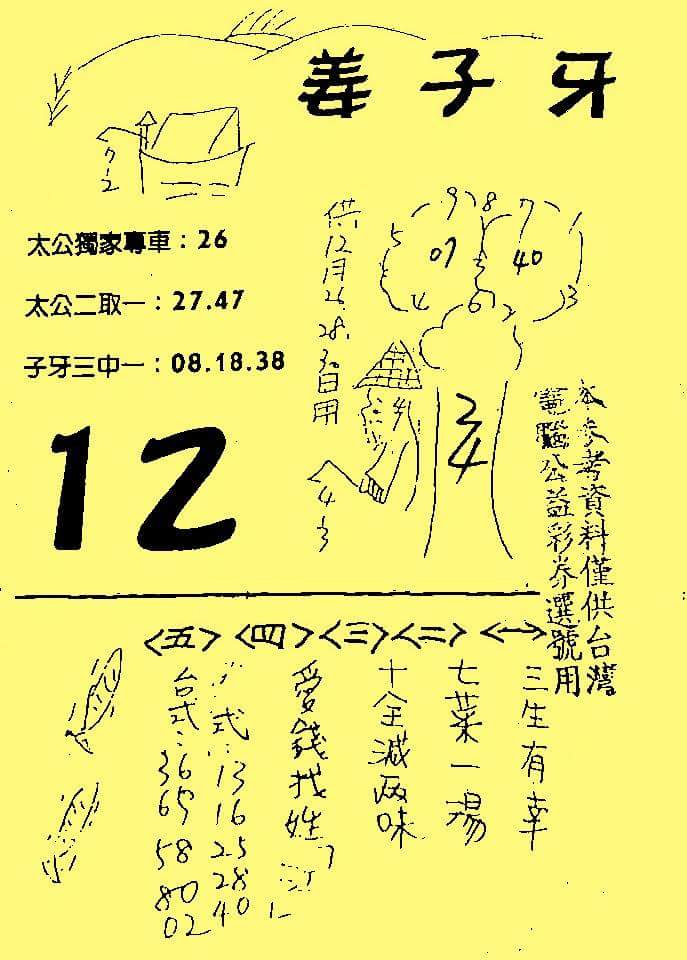 姜子牙
7
2
太公獨家專車：26
太公二取一：27.47
子牙三中一：08.18.38
12
供12月26.28.30日用
9
8
7
1
5
07
40
3
4
6
2
4
34
4
3
本參考資料僅供台灣
電腦公益彩券選號用
<一>
三生有幸
<二>
七菜一湯
<三>
十全減兩味
<四>
愛錢找姓江
<五>
式：13
16
25
28
40
台式：36
65
58
80
02